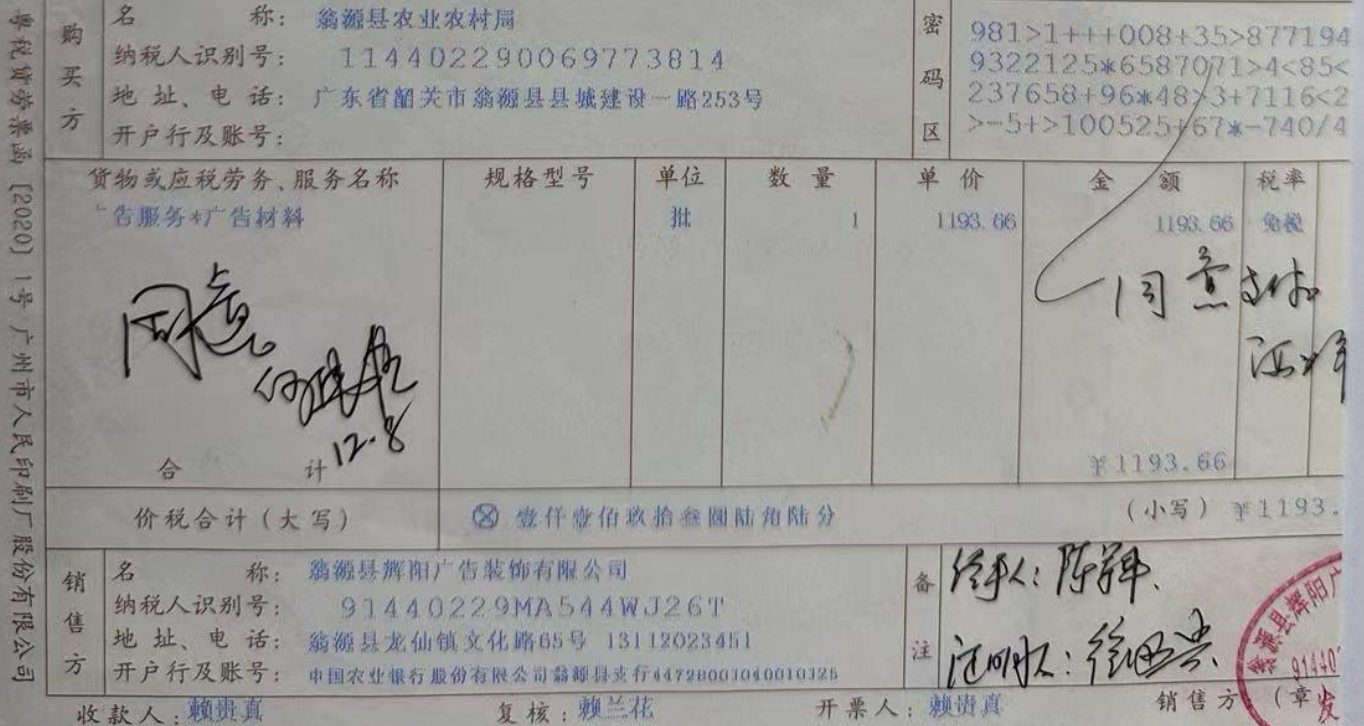 购买方
名 称: 翁源县农业农村局
纳税人识别号: 114402290069773814
地 址、电 话: 广东省韶关市翁源县县城建设一路253号
开户行及账号:
密码区
981>1+++008+35>877194
9322125*6587071>4<85<
237658+96*48>3+7116<2
>-5+>100525+67*-740/4
货物或应税劳务、服务名称 规格型号 单位 数 量 单 价 金 额 税率
告服务*广告材料 批 1 1193.66 1193.66 免税
同意
12.8
同意支付
合 计 ¥1193.66
价税合计(大写) ⊗ 壹仟壹佰玖拾叁圆陆角陆分 (小写) ¥1193.
销售方
名 称: 翁源县辉阳广告装饰有限公司
纳税人识别号: 91440229MA544WJ26T
地 址、电 话: 翁源县龙仙镇文化路65号 13112023451
开户行及账号: 中国农业银行股份有限公司翁源县支行44728001040010325
备注
经手人:陈
证明人:徐
翁源县辉阳广
91440
收款人:赖贵真 复核:赖兰花 开票人:赖贵真 销售方(章
发
税货劳票函〔2020〕1号广州市人民印刷厂股份有限公司